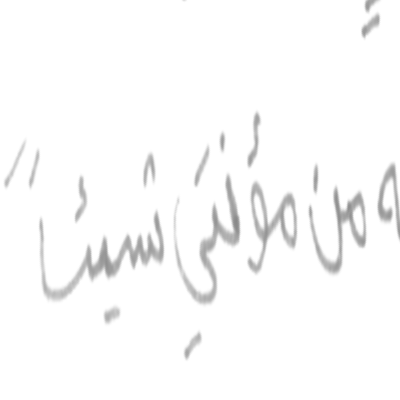 من مؤنتي شيئاً